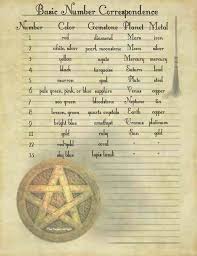 Basic Number Correspondence
Number Color Gemstone Planet Metal
1 red diamond Mars iron
2 white, silver pearl, moonstone Moon silver
3 yellow agate Mercury mercury
4 black turquoise Saturn lead
5 maroon opal Mars
6 pale green, pink, or blue sapphire Venus copper
7 green bloodstone
8 brown quartz crystals Earth copper
9 bright blue amethyst Uranus platinum
11 gold ruby Sun gold
22 coral
33 sky blue lapis lazuli